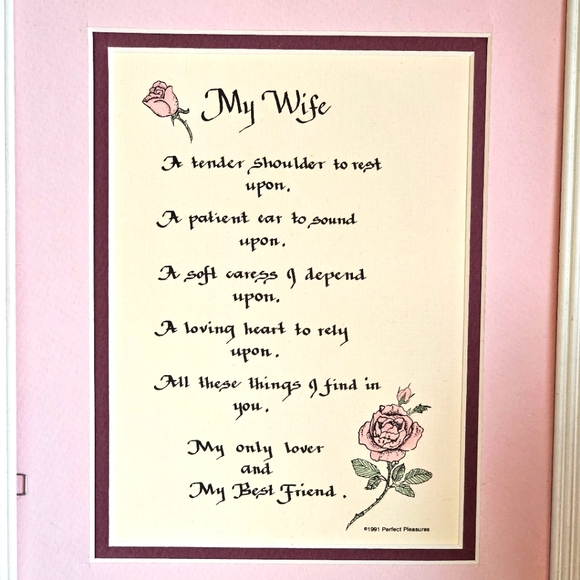 My Wife
A tender shoulder to rest
upon.
A patient ear to sound
upon.
A soft caress I depend
upon.
A loving heart to rely
upon.
All these things I find in
you.
My only lover
and
My Best Friend.
©1991 Perfect Pleasures